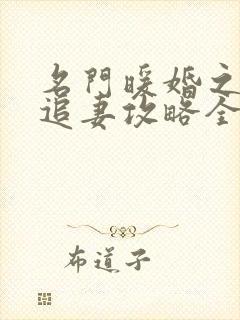 名門暖婚之
追妻攻略全
布道子